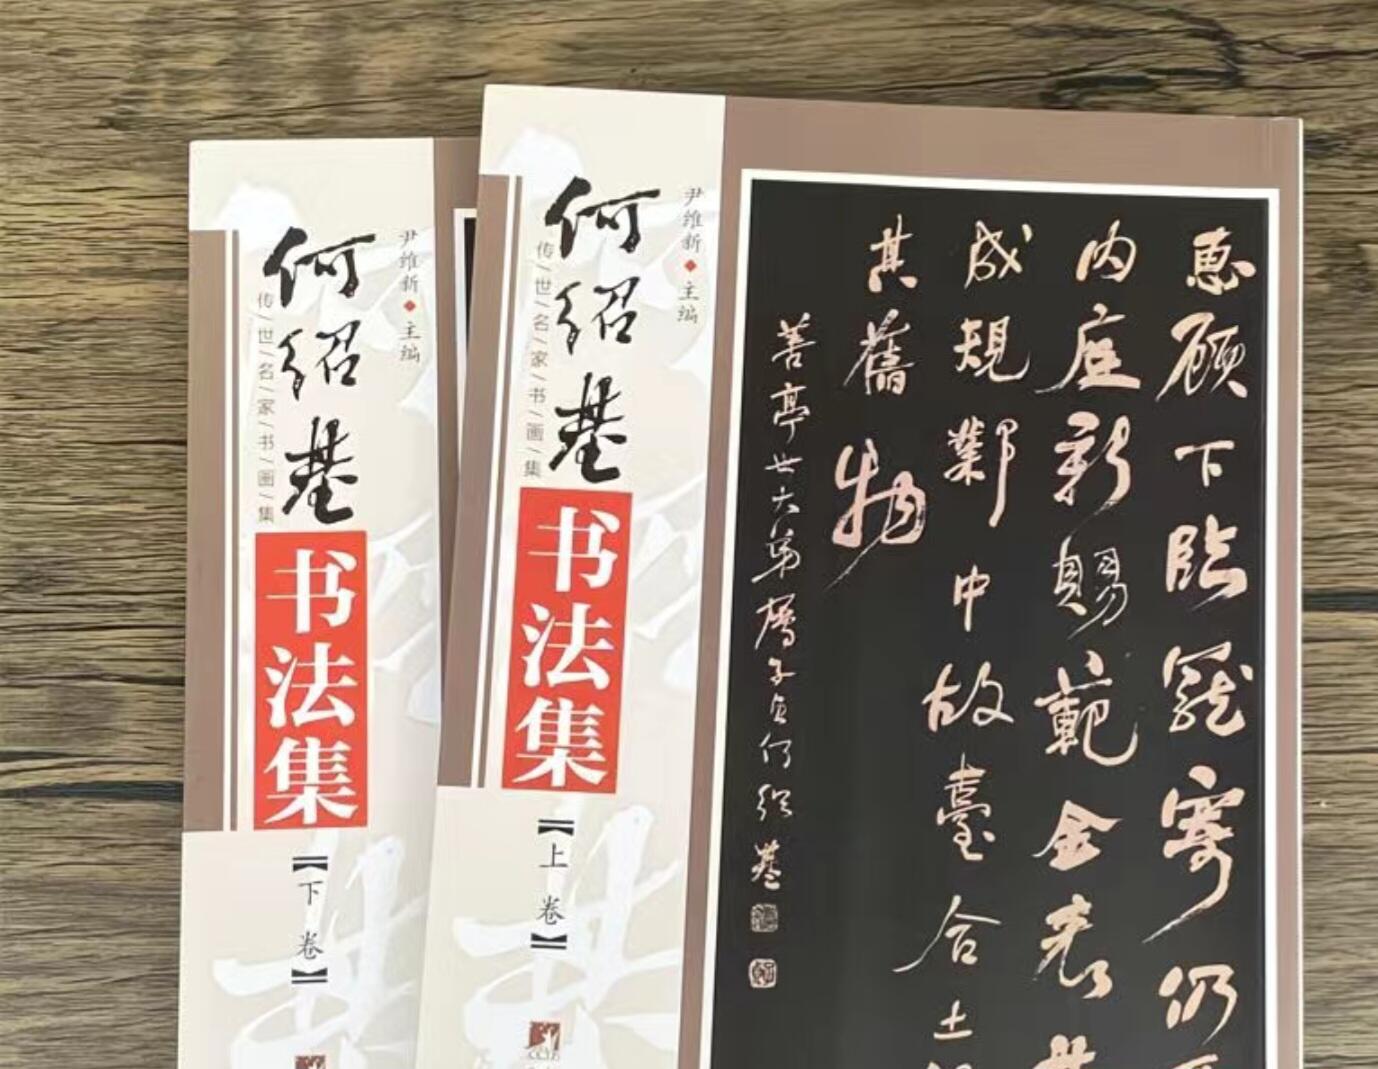 何绍基
传/世/名/家/书/画/集
尹维新◆主编
书法集
【下卷】
何绍基
传/世/名/家/书/画/集
尹维新◆主编
书法集
【上卷】
惠顾下临宠寄仍
内庭新賜範金表
成規鄴中故臺合土
其舊物
善亭世大弟屬子貞何紹基